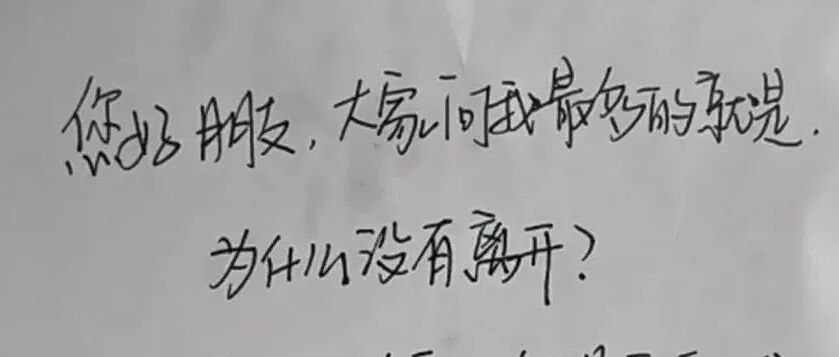 您好朋友，大家问我最多的就是.
为什么没有离开？